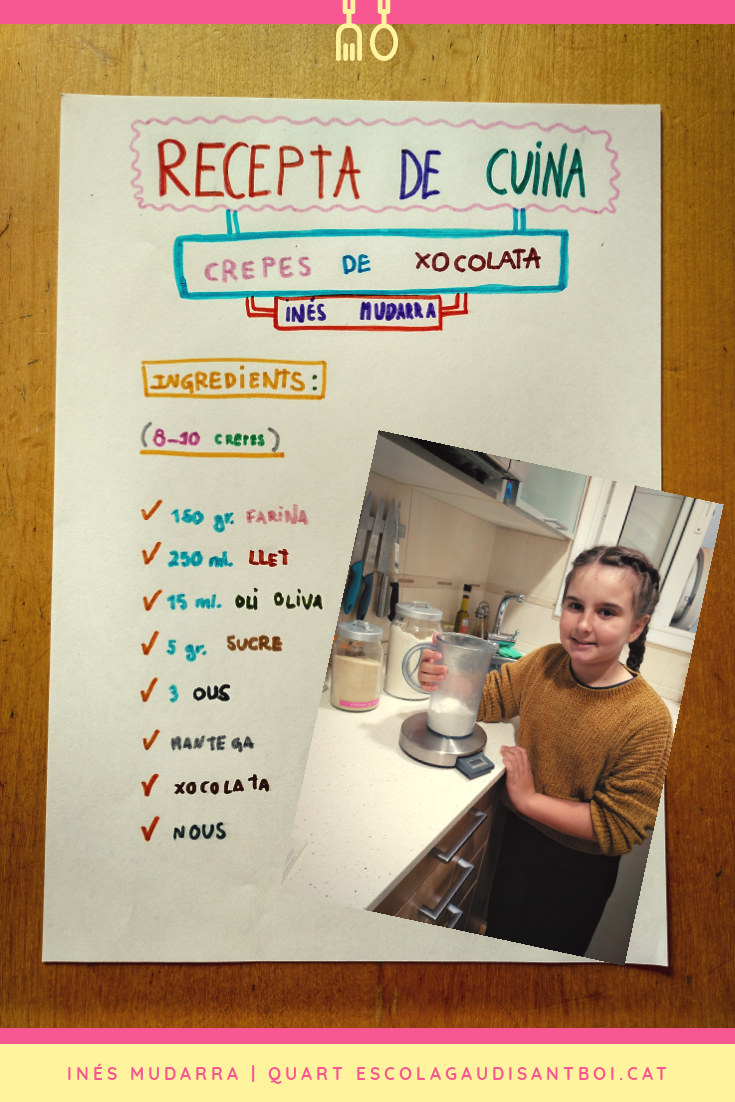 RECEPTA DE CUINA
CREPES DE XOCOLATA
INÉS MUDARRA
INGREDIENTS:
(8-10 CREPES)
✓ 150 gr. FARINA
✓ 250 ml. LLET
✓ 15 ml. OLI OLIVA
✓ 5 gr. SUCRE
✓ 3 OUS
✓ MANTEGA
✓ XOCOLATA
✓ NOUS
INÉS MUDARRA | QUART ESCOLAGAUDISANTBOI.CAT